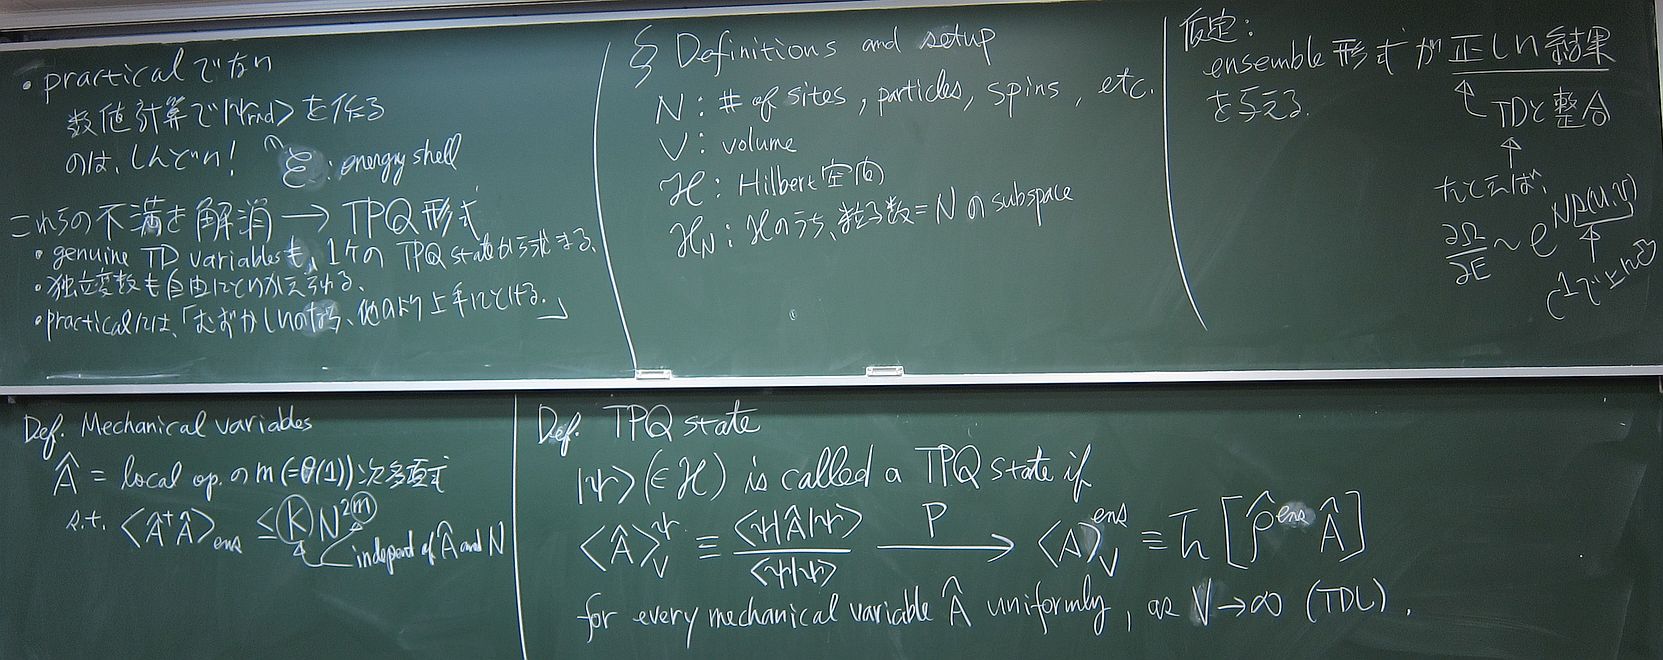 ・practicalでない
数値計算で|ψrnd>を作る
のは、しんどい!
ε : energy shell
これらの不満を解消 → TPQ形式
・genuine TD variablesも、1ケのTPQ stateから求まる、
・独立変数も自由にとりかえられる、
・practicalには、「むずかしいのなら、他のより上手にとける.」
§ Definitions and setup
N : # of sites, particles, spins, etc.
V : volume
ℋ : Hilbert空間
ℋN : ℋのうち、粒子数=Nのsubspace
仮定:
ensemble形式が正しい結果
を与える.
↑ TDと整合
↑
たとえば、
∂Ω/∂E ~ e^{Ns(u,v)}
↑
Def. Mechanical variables
Â = local op.のm(=Θ(1))次多項式
s.t. <†Â>ens ≤ K N^{2m}
independ of Â and N
Def. TPQ state
|ψ> (∈ℋ) is called a TPQ state if
<Â>^ψ_V ≡ <ψ|Â|ψ>/<ψ|ψ> —P→ <A>^ens_V ≡ Tr[ρ̂^ens Â]
for every mechanical variable Â uniformly, as V→∞ (TDL).